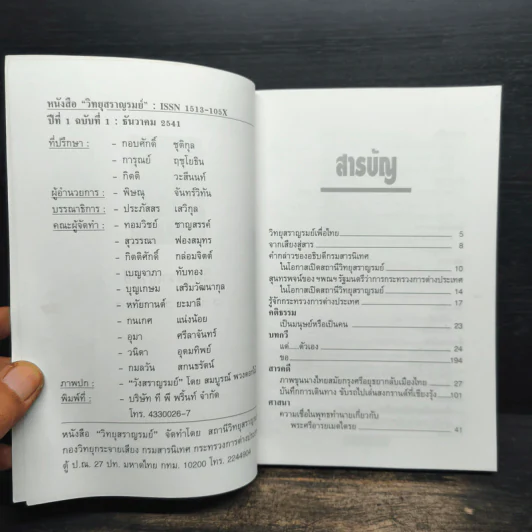 หนังสือ "วิทยุสราญรมย์" : ISSN 1513-105X
ปีที่ 1 ฉบับที่ 1 : ธันวาคม 2541
ที่ปรึกษา : - กอบศักดิ์ ชุติกุล
- การุณย์ ฤชุโยธิน
- กิตติ วะสีนนท์
ผู้อำนวยการ : - พิษณุ จันทร์วิทัน
บรรณาธิการ : - ประภัสสร เสวิกุล
คณะผู้จัดทำ : - ทอมวิชย์ ชาญสรรค์
- สุวรรณา ฟองสมุทร
- กิตติศักดิ์ กล่อมจิตต์
- เบญจาภา ทับทอง
- บุญเกษม เสริมวัฒนากุล
- หทัยกานต์ ยะมาลี
- กนเกศ แน่งน้อย
- อุมา ศรีลาจันทร์
- วนิดา อุดมทิพย์
- กมลวัน สกนธรัตน์
ภาพปก : - "วังสราญรมย์" โดย สมบูรณ์
พิมพ์ที่ : - บริษัท ที พี พริ้นท์ จำกัด
โทร. 4330026-7
หนังสือ "วิทยุสราญรมย์" จัดทำโดย สถานีวิทยุสราญรมย์
กองวิทยุกระจายเสียง กรมสารนิเทศ กระทรวงการต่างประเทศ
ตู้ ป.ณ. 27 ปท. มหาดไทย กทม. 10200 โทร. 2244904
สารบัญ
วิทยุสราญรมย์เพื่อไทย 5
จากเสียงสู่สาร 8
คำกล่าวของอธิบดีกรมสารนิเทศ
ในโอกาสเปิดสถานีวิทยุสราญรมย์ 10
สุนทรพจน์ของ ฯพณฯ รัฐมนตรีว่าการกระทรวงการต่างประเทศ
ในโอกาสเปิดสถานีวิทยุสราญรมย์ 14
รู้จักกระทรวงการต่างประเทศ 17
คติธรรม
เป็นมนุษย์หรือเป็นคน 23
บทกวี
แด่.....ตัวเอง 24
ขอ 194
สารคดี
ภาพขุนนางไทยสมัยกรุงศรีอยุธยากลับเมืองไทย 27
บันทึกการเดินทาง ขับรถไปเล่นสงกรานต์ที่เชียงรุ้ง 101
ศาสนา
ความเชื่อในพุทธทำนายเกี่ยวกับ
พระศรีอารยเมตไตรย 41